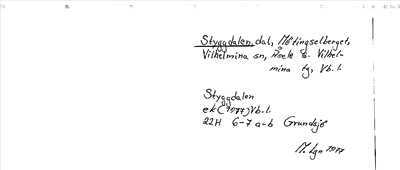 Styggdalen, dal, Mötingselberget,
Vilhelmina sn, Åsele o. Vilhel-
mina tg, Vb. l.
Styggdalen
ek (1977) Vb. l.
22H 6-7 a-b Grundsjö
M. Lgn 1977